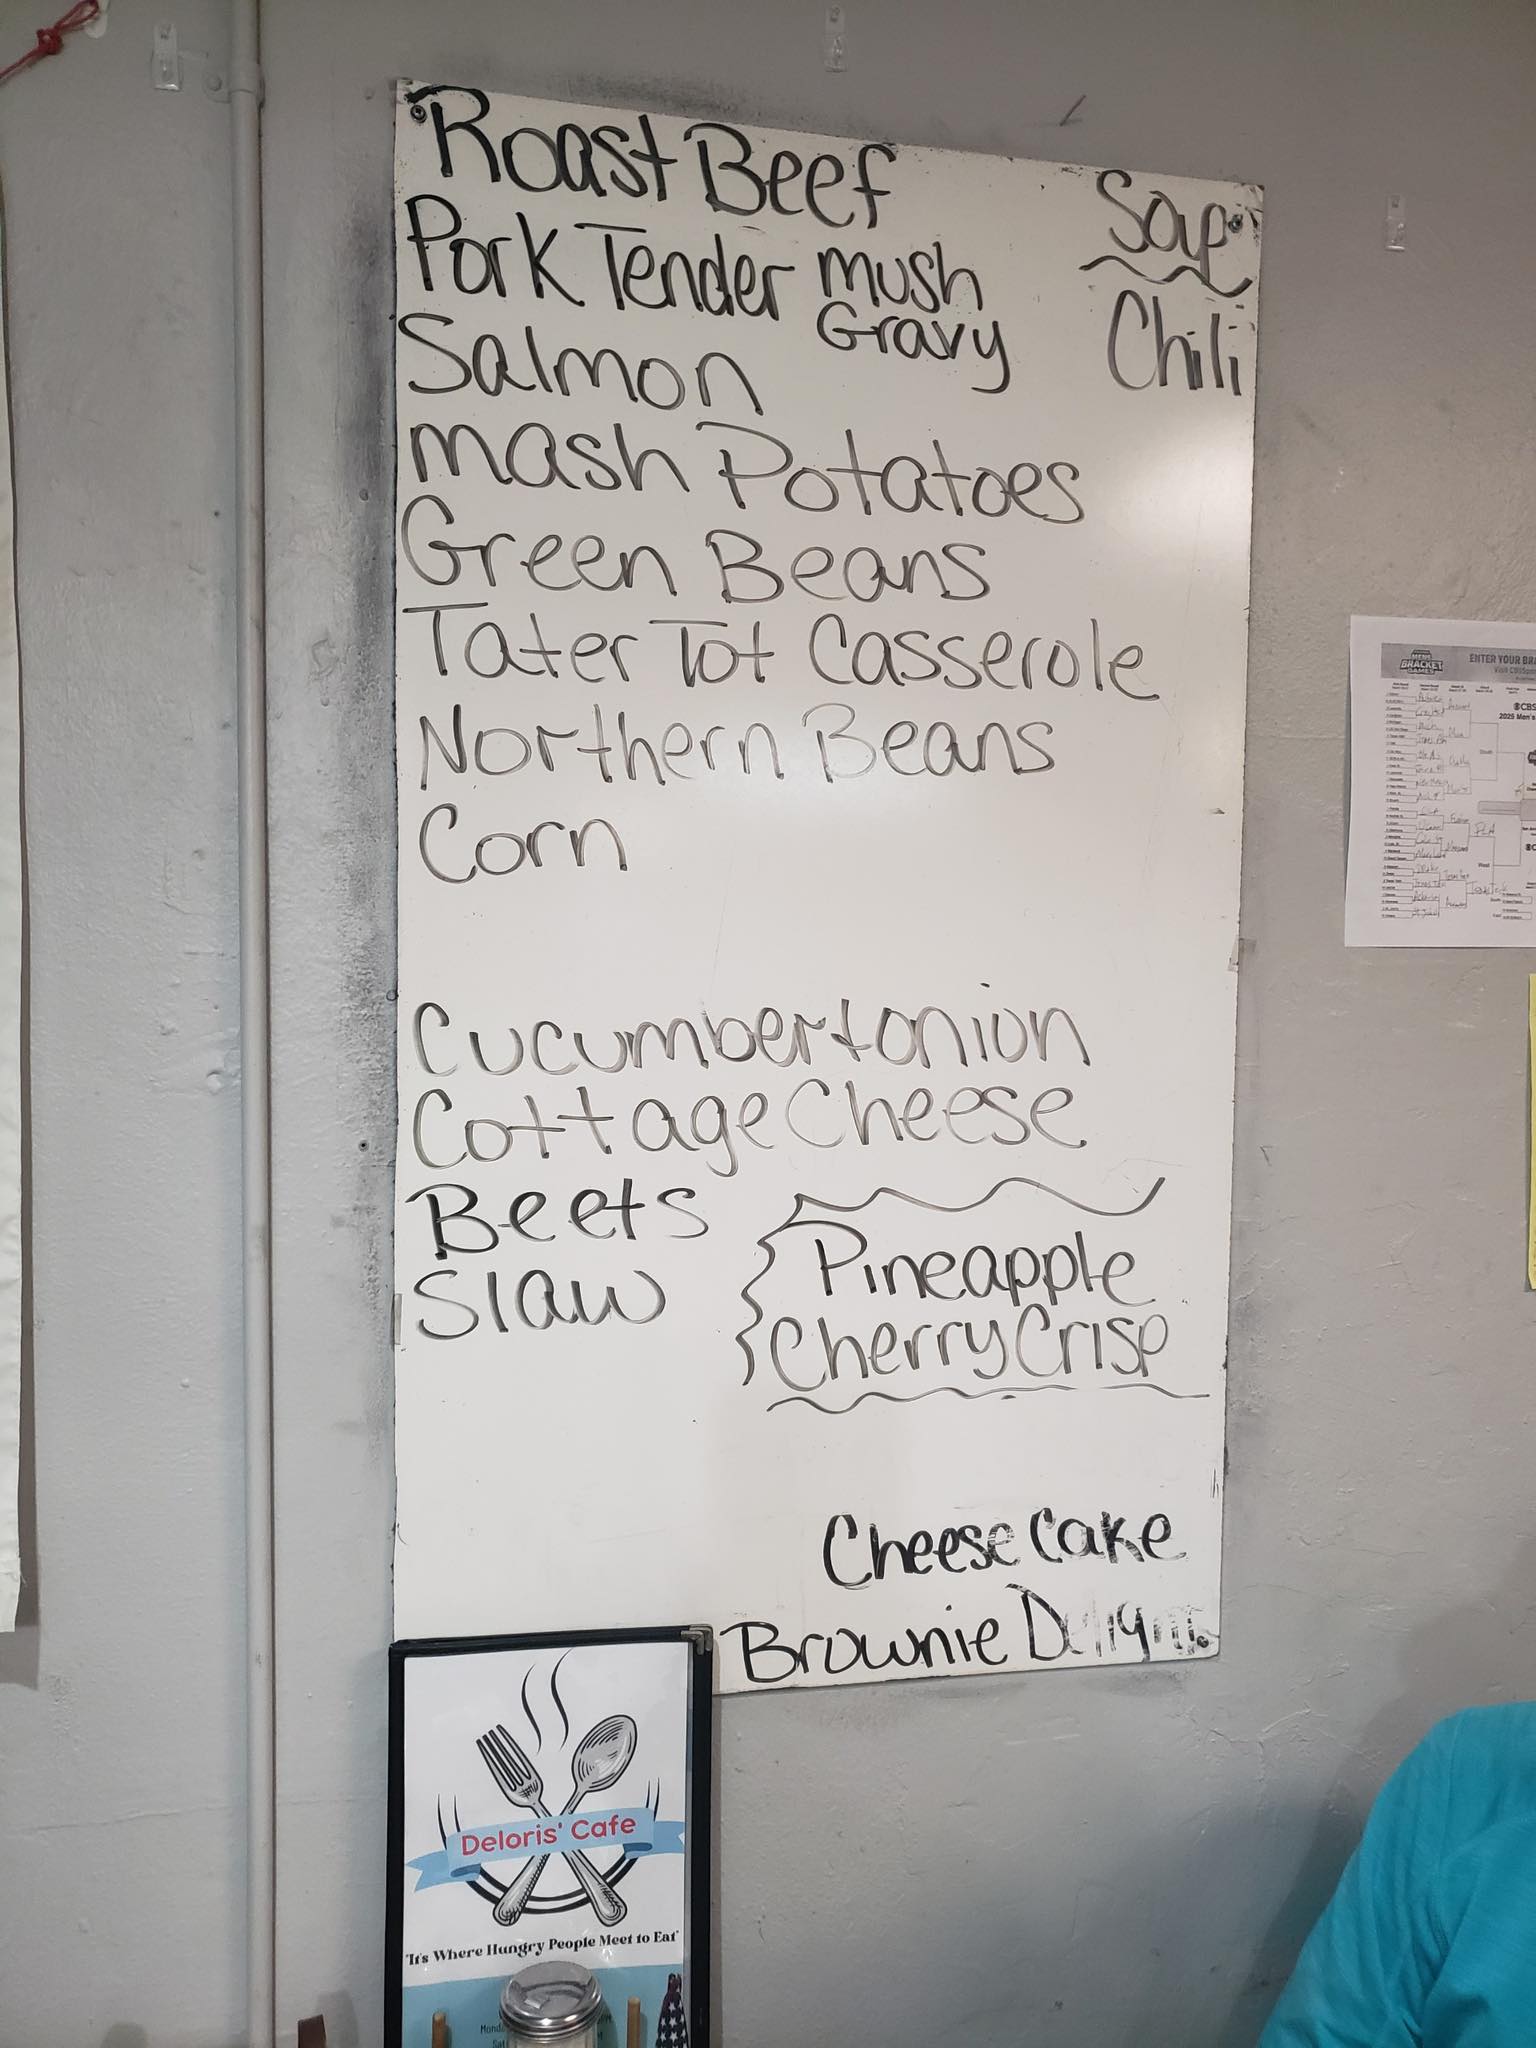 Roast Beef
Pork Tender mush
Gravy
Salmon
mash Potatoes
Green Beans
Tater Tot Casserole
Northern Beans
Corn
Soup
Chili
Cucumber+onion
Cottage Cheese
Beets
Slaw
Pineapple
Cherry Crisp
Cheese Cake
Brownie Delight
Deloris' Cafe
"It's Where Hungry People Meet to Eat"
BRACKET
GAMES
ENTER YOUR BRA
CBS
2025 Men's
South
West